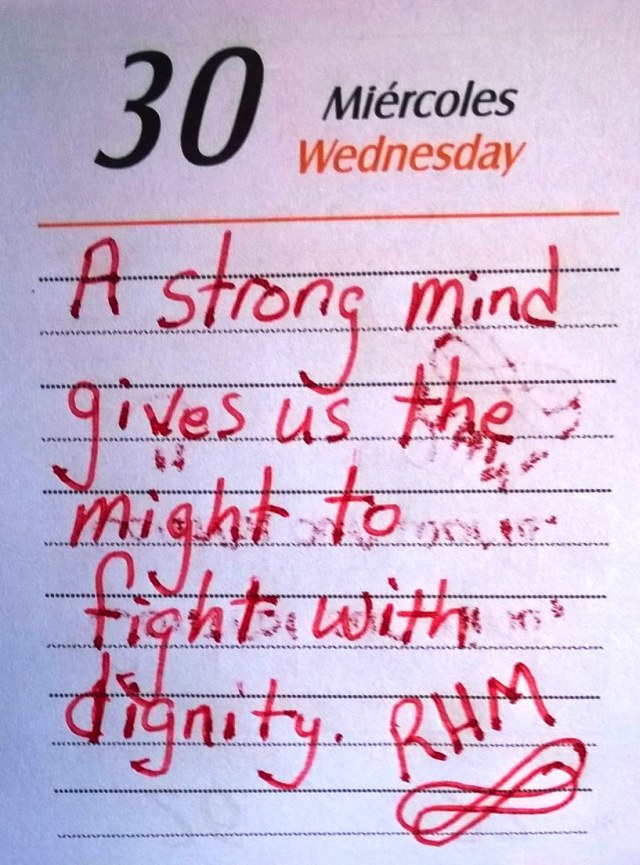 30
Miércoles
Wednesday
A strong mind
gives us the
might to
fight with
dignity. RHM